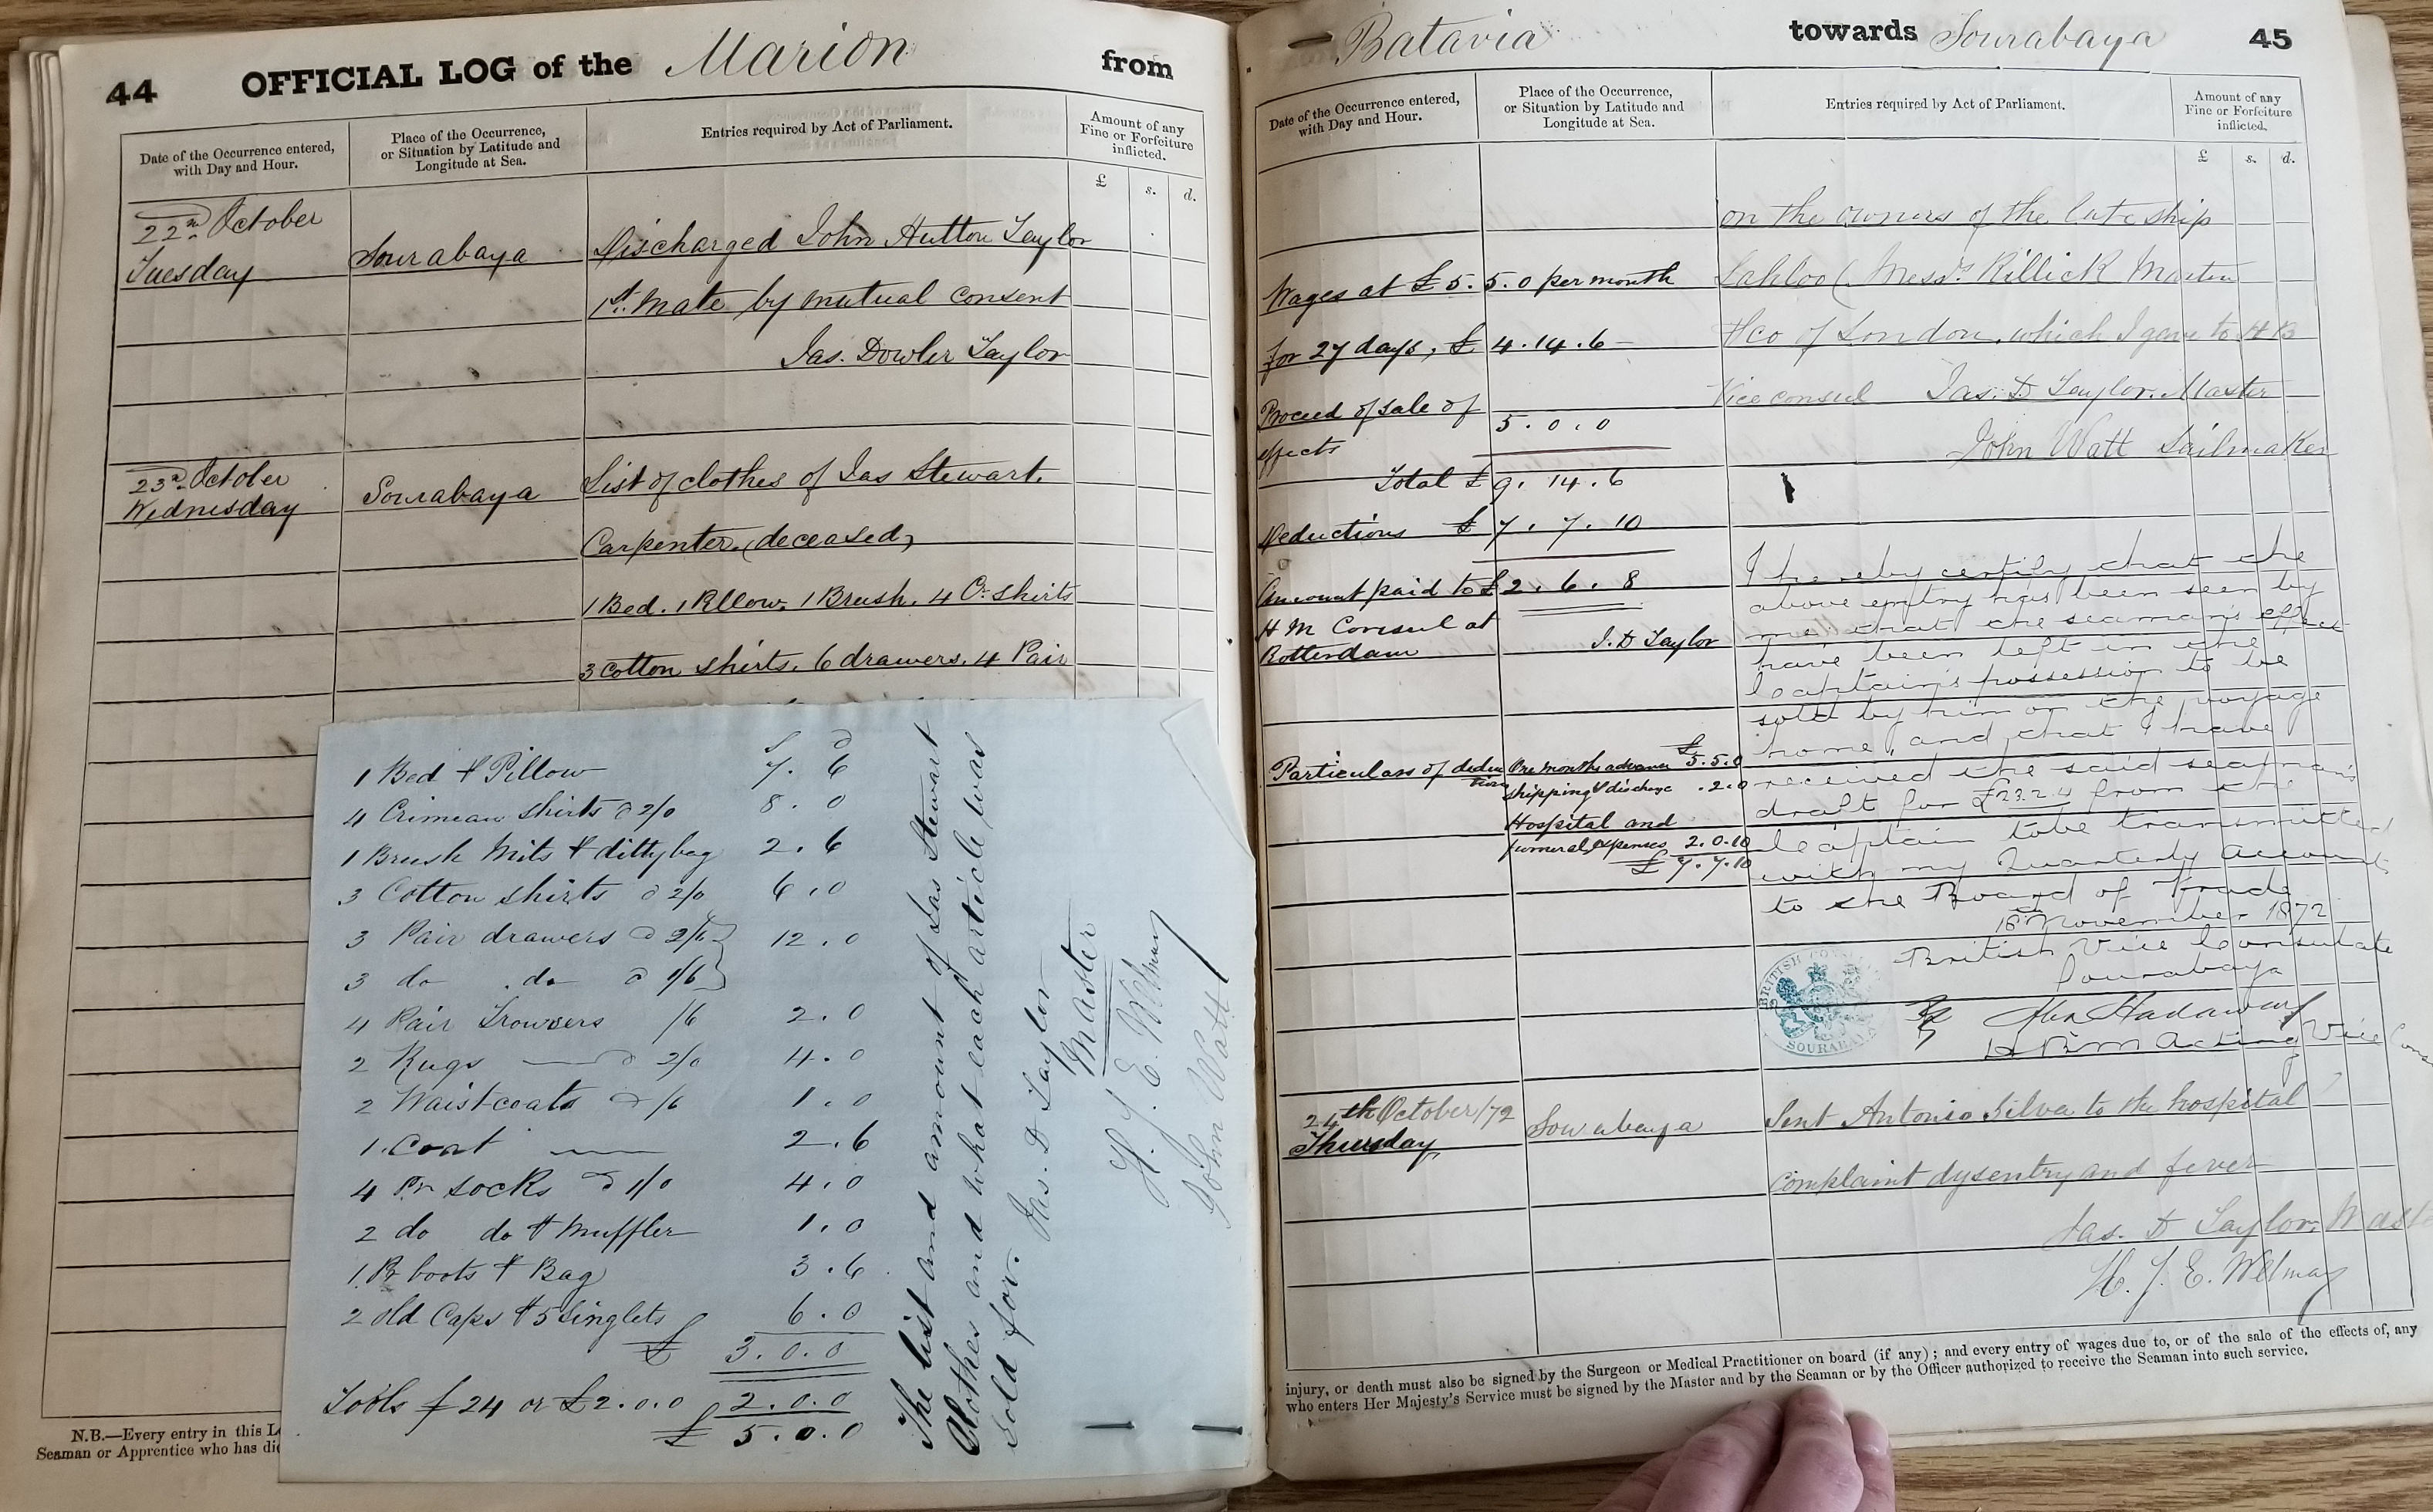 44 OFFICIAL LOG of the Marion from
Date of the Occurrence entered, with Day and Hour.
Place of the Occurrence, or Situation by Latitude and Longitude at Sea.
Entries required by Act of Parliament.
Amount of any Fine or Forfeiture inflicted.
£ s. d.
22nd October
Tuesday
Sourabaya
Discharged John Hutton Taylor
1st Mate by mutual consent
Jas. Dowler Taylor
23rd October
Wednesday
Sourabaya
List of clothes of Jas Stewart.
Carpenter (deceased)
1 Bed. 1 Pillow. 1 Brush. 4 Cr shirts
3 Cotton shirts. 6 drawers. 4 Pair
s d
1 Bed & Pillow 7. 6
4 Crimean shirts @ 2/0 8. 0
1 Brush Mits & dittybag 2. 6
3 Cotton shirts @ 2/0 6. 0
3 Pair drawers @ 2/6 12. 0
3 do do @ 1/6
4 Pair Trowsers /6 2. 0
2 Rugs @ 2/0 4. 0
2 Waistcoats @ /6 1. 0
1. Coat 2. 6
4 Pr socks @ 1/0 4. 0
2 do do & Muffler 1. 0
1 Pr boots & Bag 3. 6
2 old Caps & 5 Singlets 6. 0
£ 3. 0. 0
Tools f 24 or £2.0.0 2. 0. 0
£ 5. 0. 0
The list and amount of Jas Stewart
Clothes and what each article was
sold for.
Jas. D Taylor
Master
H. J. E.
John Watt
N.B.—Every entry in this
Seaman or Apprentice who has
Batavia towards Sourabaya 45
Date of the Occurrence entered, with Day and Hour.
Place of the Occurrence, or Situation by Latitude and Longitude at Sea.
Entries required by Act of Parliament.
Amount of any Fine or Forfeiture inflicted.
£ s. d.
Wages at £5. 5. 0 per month
for 27 days, £ 4. 14. 6
Proceed of sale of
effects 5. 0. 0
Total £ 9. 14. 6
Deductions £ 7. 7. 10
Amount paid to £2. 6. 8
H M Consul at
Rotterdam J. D Taylor
Particulars of deductions
One months advance £5. 5. 0
Shipping & discharge . 2. 0
Hospital and
funeral expenses 2. 0. 10
£ 7. 7. 10
on the owners of the late ship
Lahloo (Messrs Killick Martin
& Co of London, which I gave to H B
Vice consul Jas. D Taylor. Master
John Watt Sailmaker
I hereby certify that the
above entry has been seen by
me that the seaman's effects
have been left in the
Captain's possession to be
sold by him on the voyage
home, and that I have
received the said seaman's
draft for £23.2.4 from the
Captain to be transmitted
with my Quarterly Account
to the Board of Trade
18th November 1872
British Vice Consulate
Sourabaya
HBM Acting Vice
BRITISH
SOURABAYA
24th October/72
Thursday
Sourabaya
Sent Antonio Silva to the hospital
Complaint dysentry and fever
Jas. D Taylor. Mast
H. J. E.
injury, or death must also be signed by the Surgeon or Medical Practitioner on board (if any); and every entry of wages due to, or of the sale of the effects of, any
who enters Her Majesty's Service must be signed by the Master and by the Seaman or by the Officer authorized to receive the Seaman into such service.